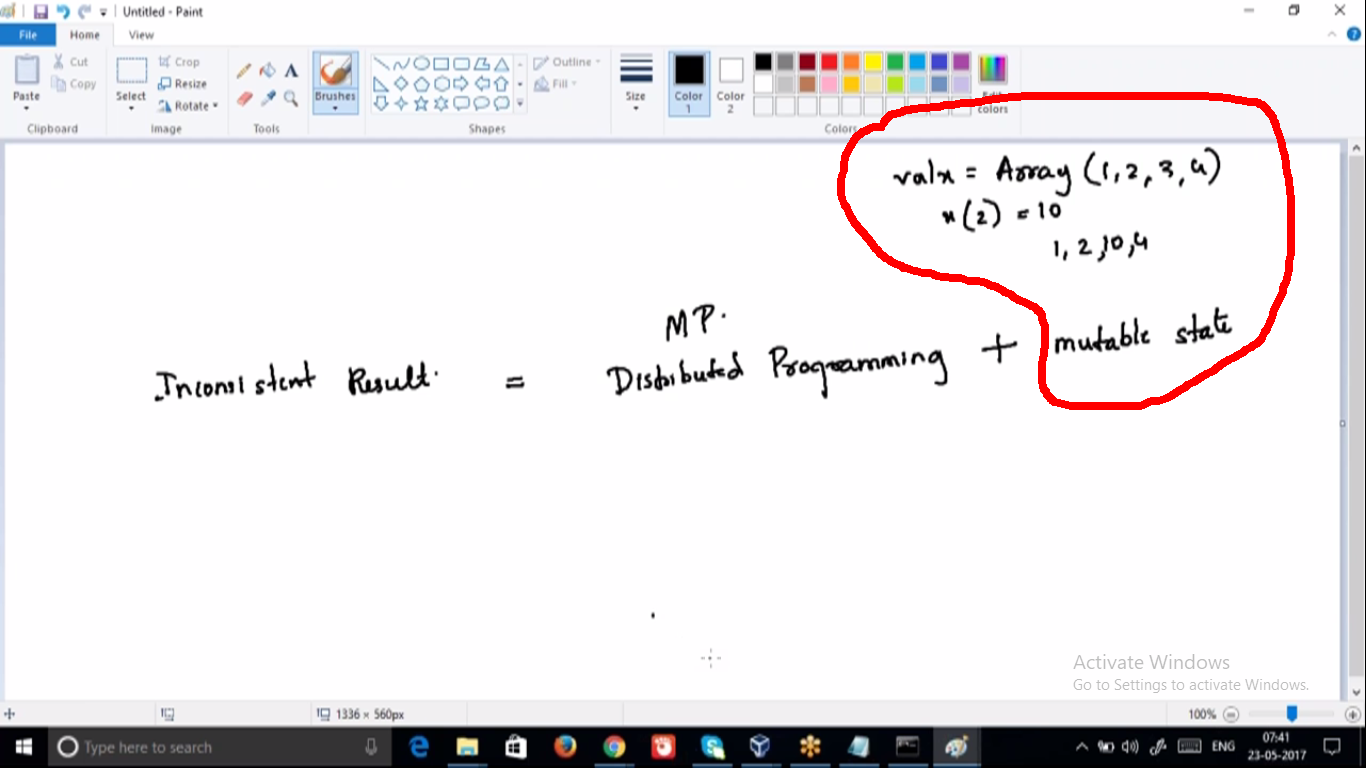 Untitled - Paint
File Home View
Paste Cut Copy Clipboard
Select Crop Resize Rotate Image
Tools
Brushes
Outline Fill Shapes
Size
Color 1
Color 2
Edit colors
Colors
valx = Array (1, 2, 3, 4)
x(2) = 10
1, 2, 10, 4
MP.
Inconsistent Result. = Distributed Programming + mutable state
Activate Windows
Go to Settings to activate Windows.
1336 × 560px 100%
Type here to search ENG 07:41
23-05-2017